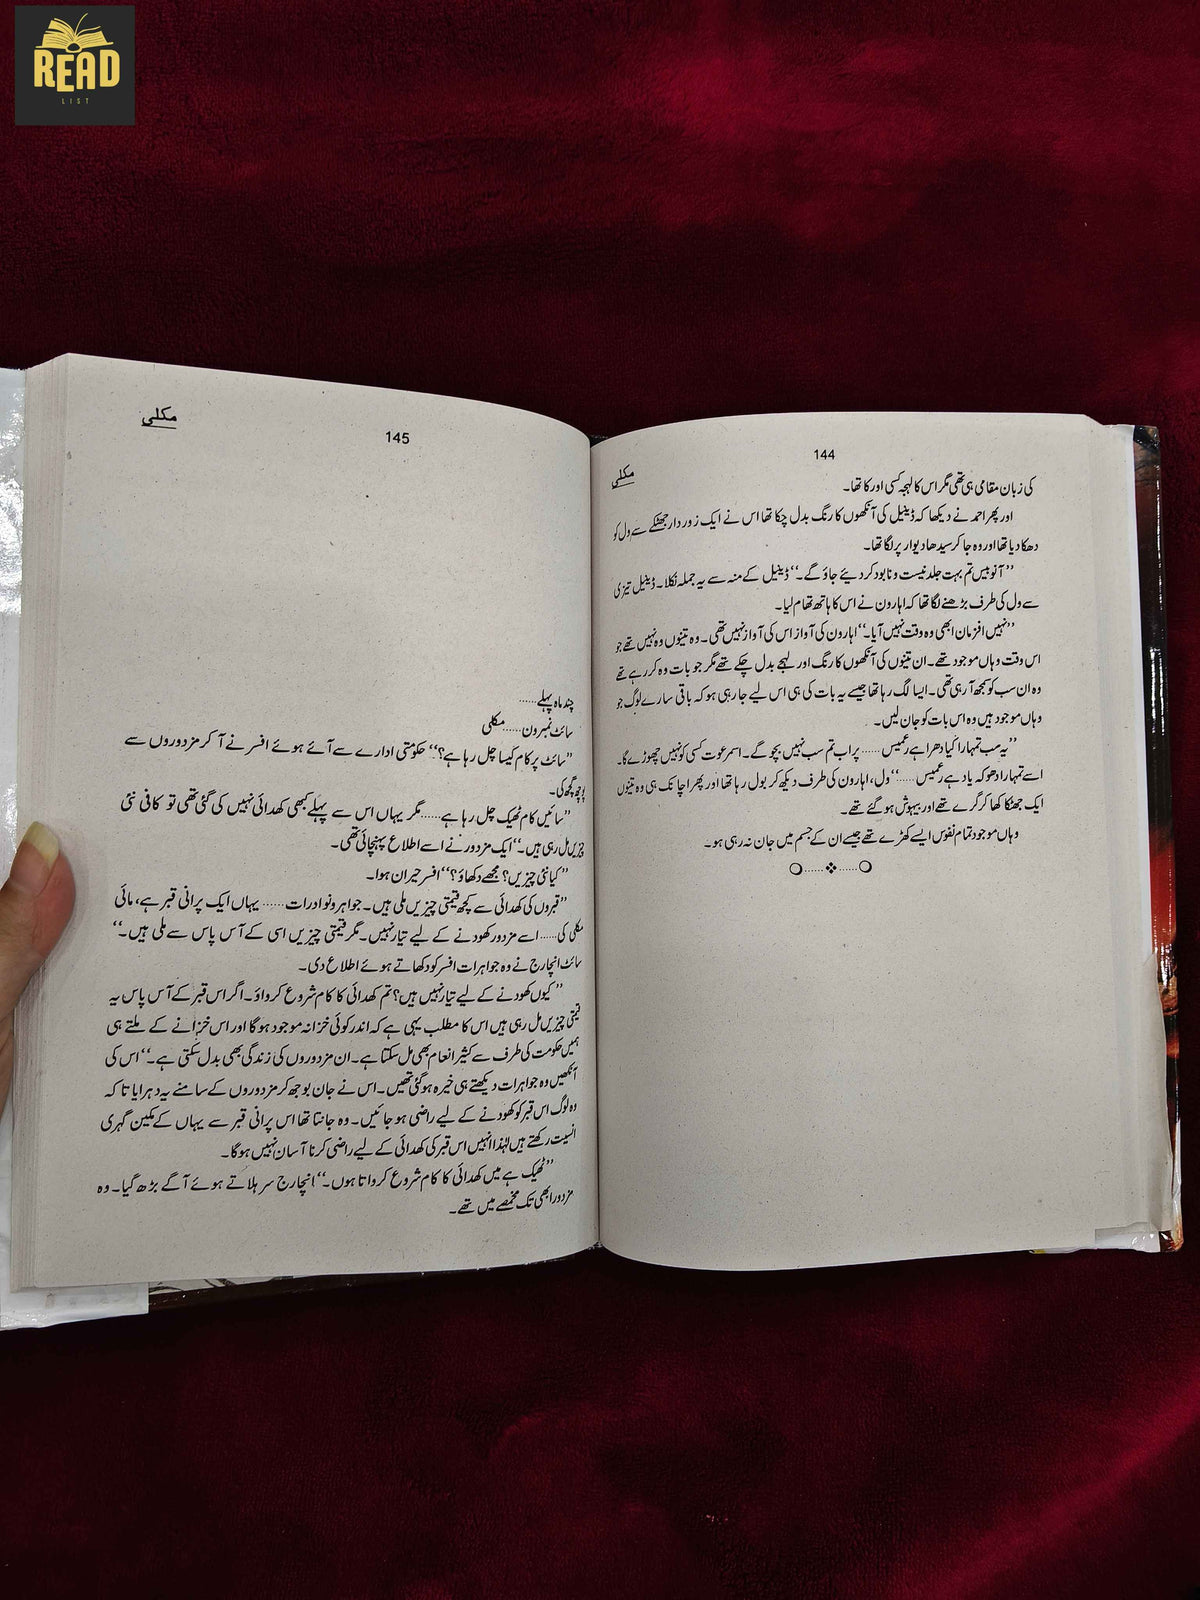 READ
LIST
144
مکلی
کی زبان مقامی ہی تھی مگر اس کا لہجہ کسی اور کا تھا۔
اور پھر احمد نے دیکھا کہ ڈینیل کی آنکھوں کا رنگ بدل چکا تھا اس نے ایک زور دار جھٹکے سے ول کو
دھکا دیا تھا اور وہ جا کر سیدھا دیوار پر لگا تھا۔
’’آنوبیس تم بہت جلد نیست و نابود کر دیئے جاؤ گے۔‘‘ ڈینیل کے منہ سے یہ جملہ نکلا۔ ڈینیل تیزی
سے ول کی طرف بڑھنے لگا تھا کہ اہارون نے اس کا ہاتھ تھام لیا۔
’’نہیں افزمان ابھی وہ وقت نہیں آیا۔‘‘ اہارون کی آواز اس کی آواز نہیں تھی۔ وہ تینوں وہ نہیں تھے جو
اس وقت وہاں موجود تھے۔ ان تینوں کی آنکھوں کا رنگ اور لہجے بدل چکے تھے مگر جو بات وہ کر رہے تھے
وہ ان سب کو سمجھ آ رہی تھی۔ ایسا لگ رہا تھا جیسے یہ بات کی ہی اس لیے جا رہی ہو کہ باقی سارے لوگ جو
وہاں موجود ہیں وہ اس بات کو جان لیں۔
’’یہ سب تمہارا کیا دھرا ہے رعمیس...... پر اب تم سب نہیں بچو گے۔ اسمرعوت کسی کو نہیں چھوڑے گا۔
اسے تمہارا دھوکہ یاد ہے رعمیس......‘‘ ول، اہارون کی طرف دیکھ کر بول رہا تھا اور پھر اچانک ہی وہ تینوں
ایک جھٹکا کھا کر گرے تھے اور بیہوش ہو گئے تھے۔
وہاں موجود تمام نفوس ایسے کھڑے تھے جیسے ان کے جسم میں جان نہ رہی ہو۔
145
مکلی
چند ماہ پہلے......
سائٹ نمبرون...... مکلی
’’سائٹ پر کام کیسا چل رہا ہے؟‘‘ حکومتی ادارے سے آئے ہوئے افسر نے آ کر مزدوروں سے
پوچھ گچھ کی۔
’’سائیں کام ٹھیک چل رہا ہے...... مگر یہاں اس سے پہلے کبھی کھدائی نہیں کی گئی تھی تو کافی نئی
چیزیں مل رہی ہیں۔‘‘ ایک مزدور نے اسے اطلاع پہنچائی تھی۔
’’کیا نئی چیزیں؟ مجھے دکھاؤ؟‘‘ افسر حیران ہوا۔
’’قبروں کی کھدائی سے کچھ قیمتی چیزیں ملی ہیں۔ جواہر و نوادرات...... یہاں ایک پرانی قبر ہے، مائی
مکلی کی...... اسے مزدور کھودنے کے لیے تیار نہیں۔ مگر قیمتی چیزیں اسی کے آس پاس سے ملی ہیں۔‘‘
سائٹ انچارج نے وہ جواہرات افسر کو دکھاتے ہوئے اطلاع دی۔
’’کیوں کھودنے کے لیے تیار نہیں ہیں؟ تم کھدائی کا کام شروع کرواؤ۔ اگر اس قبر کے آس پاس یہ
قیمتی چیزیں مل رہی ہیں اس کا مطلب یہی ہے کہ اندر کوئی خزانہ موجود ہو گا اور اس خزانے کے ملتے ہی
ہمیں حکومت کی طرف سے کثیر انعام بھی مل سکتا ہے۔ ان مزدوروں کی زندگی بھی بدل سکتی ہے۔‘‘ اس کی
آنکھیں وہ جواہرات دیکھتے ہی خیرہ ہو گئی تھیں۔ اس نے جان بوجھ کر مزدوروں کے سامنے یہ دہرایا تا کہ
وہ لوگ اس قبر کو کھودنے کے لیے راضی ہو جائیں۔ وہ جانتا تھا اس پرانی قبر سے یہاں کے مکین گہری
انسیت رکھتے ہیں لہٰذا انہیں اس قبر کی کھدائی کے لیے راضی کرنا آسان نہیں ہو گا۔
’’ٹھیک ہے میں کھدائی کا کام شروع کرواتا ہوں۔‘‘ انچارج سر ہلاتے ہوئے آگے بڑھ گیا۔ وہ
مزدور ابھی تک مخمصے میں تھے۔